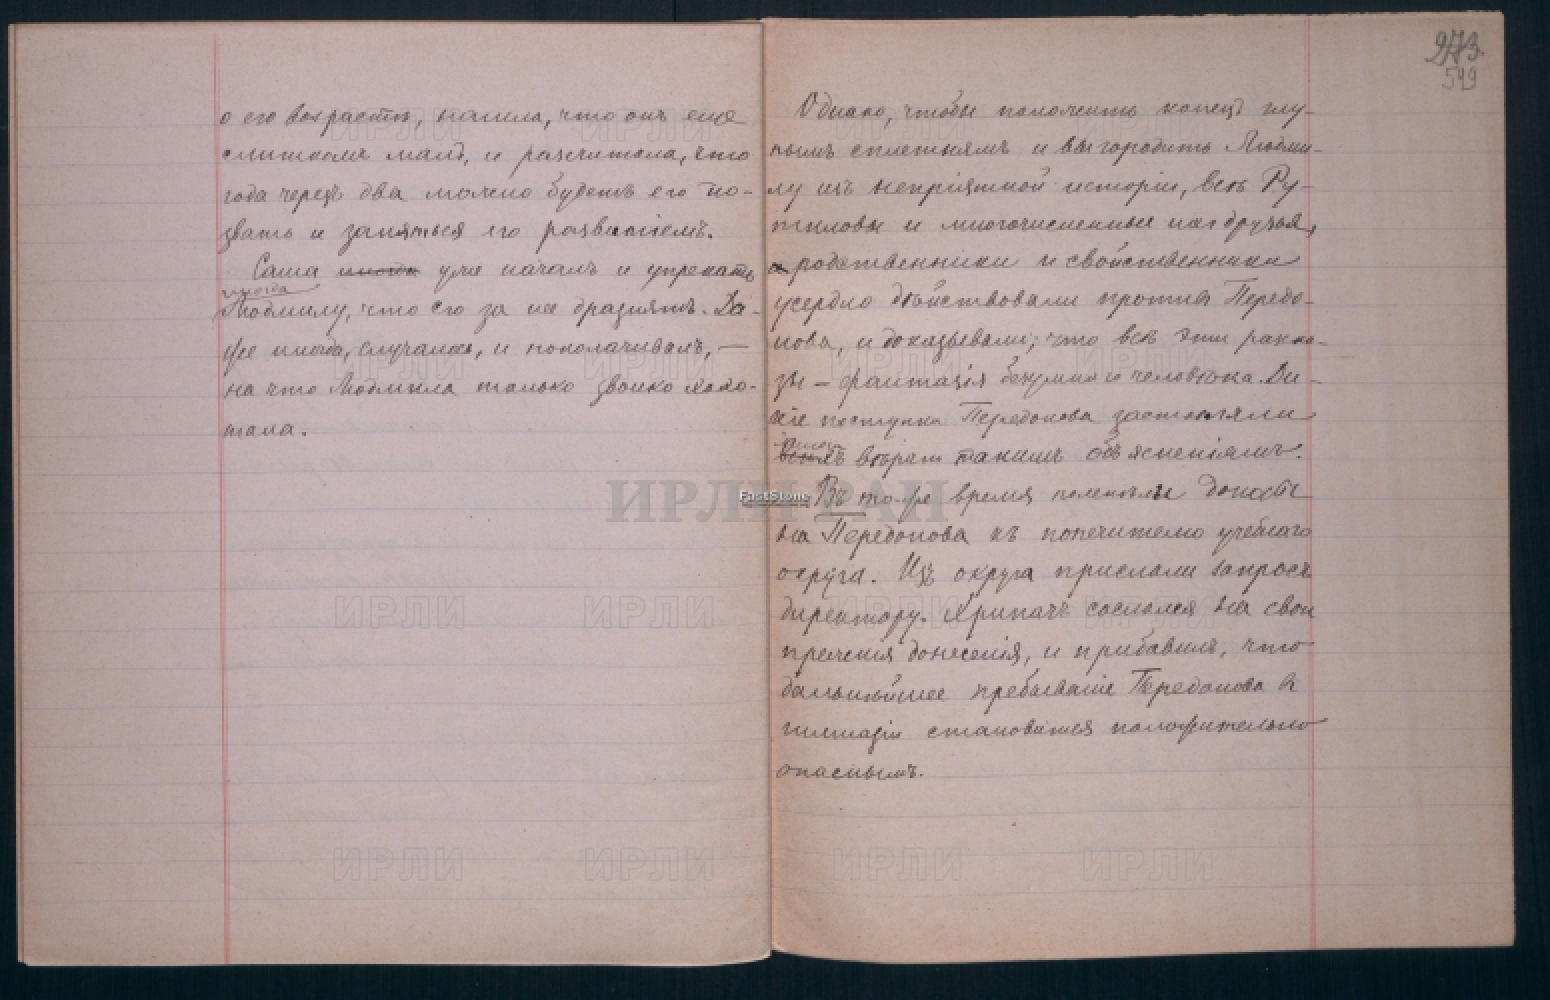 о его возрастѣ, нашла, что онъ еще
слишкомъ малъ, и разсчитала, что
года черезъ два можно будетъ его по-
звать и заняться его развитіемъ.
Саша уже началъ и упрекать
иногда
Людмилу, что его за нее дразнятъ. Да-
же иногда, случалось, и поколачивалъ, —
на что Людмила только звонко хохо-
тала.
273
549
Однако, чтобы положить конецъ глу-
пымъ сплетнямъ и выгородить Людми-
лу изъ непріятной исторіи, всѣ Ру-
тиловы и многочисленные ихъ друзья,
родственники и свойственники
усердно дѣйствовали противъ Передо-
нова, и доказывали, что всѣ эти разска-
зы – фантазія безумнаго человѣка. Ди-
кіе поступки Передонова заставляли
многихъ
вѣрить такимъ объясненіямъ.
Въ то же время полетѣли доносы
на Передонова къ попечителю учебнаго
округа. Изъ округа прислали запросъ
директору. Хрипачъ сослался на свои
прежнія донесенія, и прибавилъ, что
дальнѣйшее пребываніе Передонова въ
гимназіи становится положительно
опаснымъ.
ИРЛИ РАН
FastStone
ИРЛИ